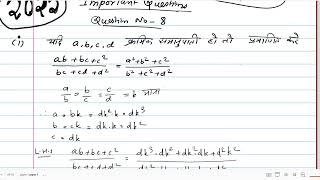 2022
Important Questions
Question No-8
(i) यदि a,b,c,d क्रमिक समानुपाती हो तो प्रमाणित करें
ab+bc+c² / bc+cd+d² = a²+b²+c² / b²+c²+d²
a/b = b/c = c/d = k माना
∴ a=bk = dk²k = dk³
b=ck = dk.k = dk²
c=dk
L.H.S ab+bc+c² / bc+cd+d² = dk³.dk²+dk².dk+d²k²